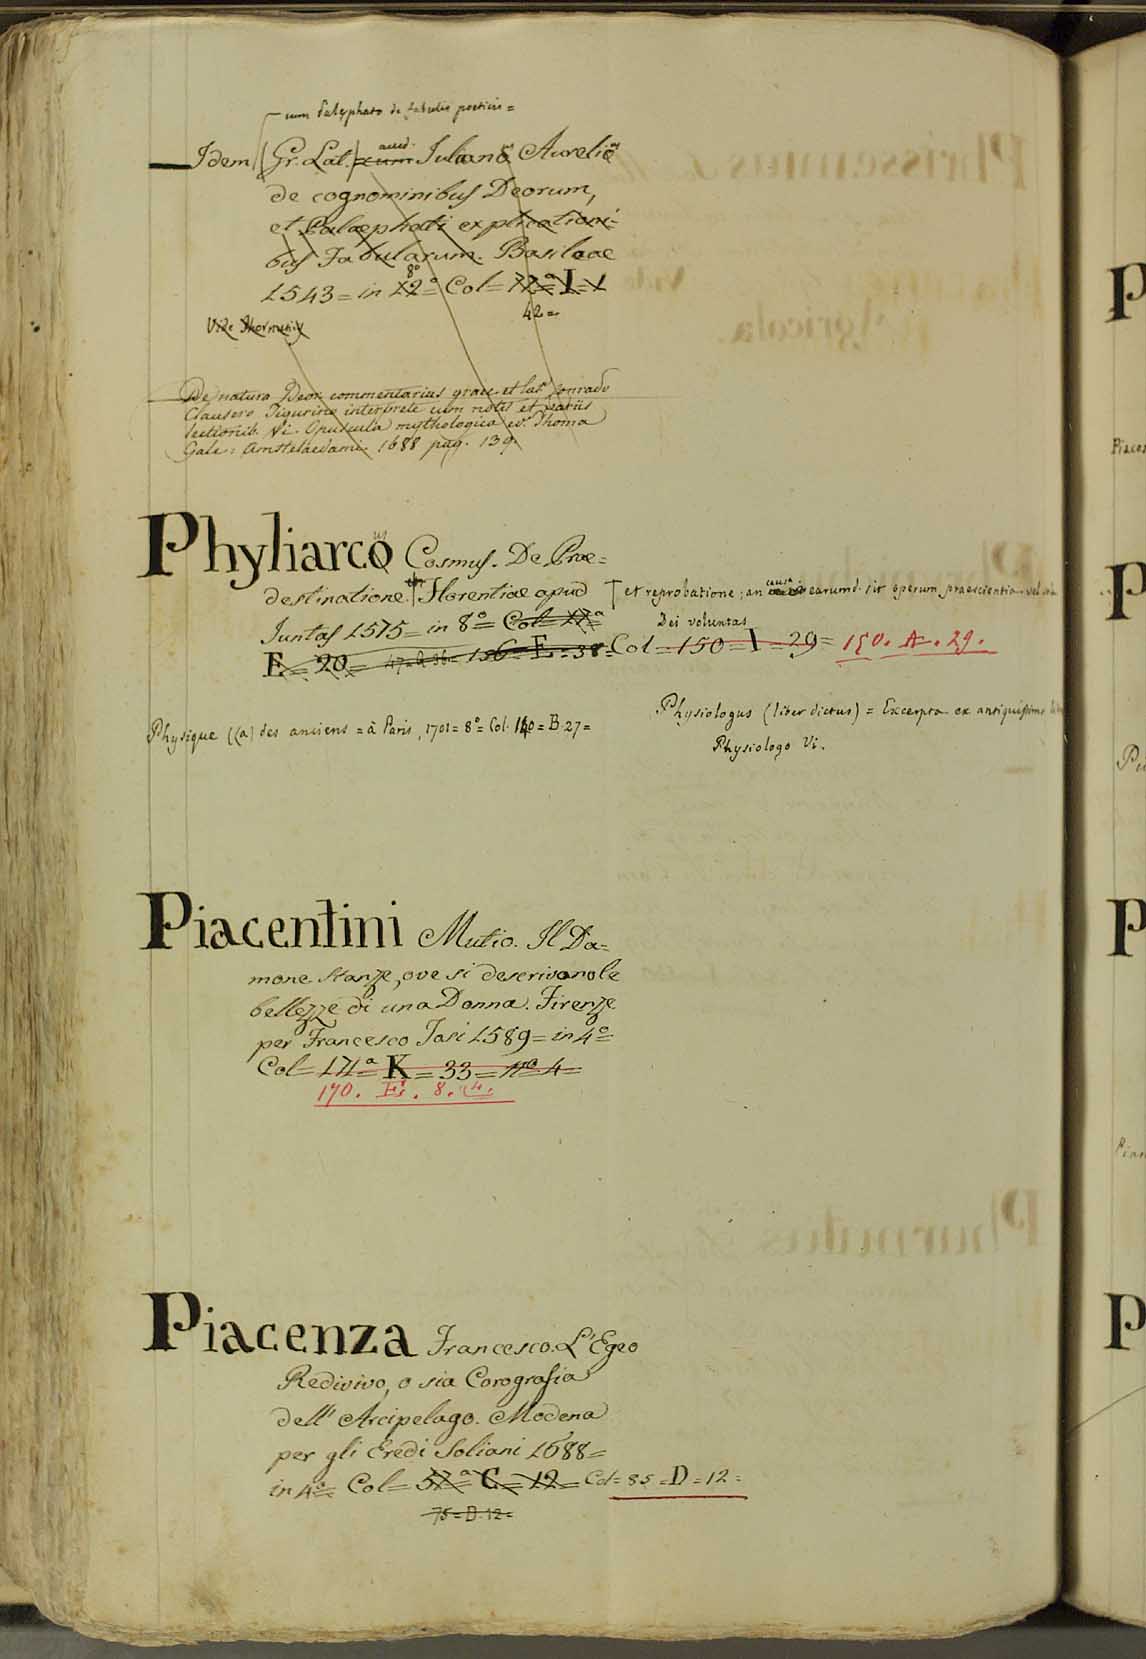 cum Palęphato de fabulis poeticis =
Idem (Gr. Lat.) cum auct. Iuliano Aurelio
de cognominibus Deorum,
et Palæphati explicationi-
bus Fabularum. Basileae
1543 = in 12.° 8° Col = I = 1
42 =
Vide Phornutij
De natura Deor. commentarius graec. et lat. Conrado
Clausero Tigurino interprete cum notis et variis
lectionib. Vi. Opuscula mythologica ed. Thoma
Gale: Amstelaedami 1688 pag. 139.
Phyliarcus Cosmus. De Prae=
destinatione † Florentiae apud
† et reprobatione; an causa earumd. sit operum praescientia vel
Dei voluntas
Juntas 1575 = in 8° = Col = 
E = 20 = 47 = 156 = E = 38 = Col = 150 = I = 29 = 150. A. 29.
Physique (la) des anciens = à Paris, 1701 = 8° = Col. 140 = B. 27 =
Physiologus (liber dictus) = Excerpta ex antiquissimo
Physiologo Vi.
Piacentini Mutio. Il Da=
mone Stanze, ove si descrivano le
bellezze di una Donna. Firenze
per Francesco Tosi 1589 = in 4° =
Col = 171ª = K = 33 = n° 4 =
170. E. 8. 4.
Piacenza Francesco. L'Egeo
Redivivo, o sia Corografia
dell' Arcipelago. Modena
per gli Eredi Soliani 1688 =
in 4° = Col = 57ª = C = 12 = Col = 85 = D = 12 =
75 = D. 12 =
Piacen